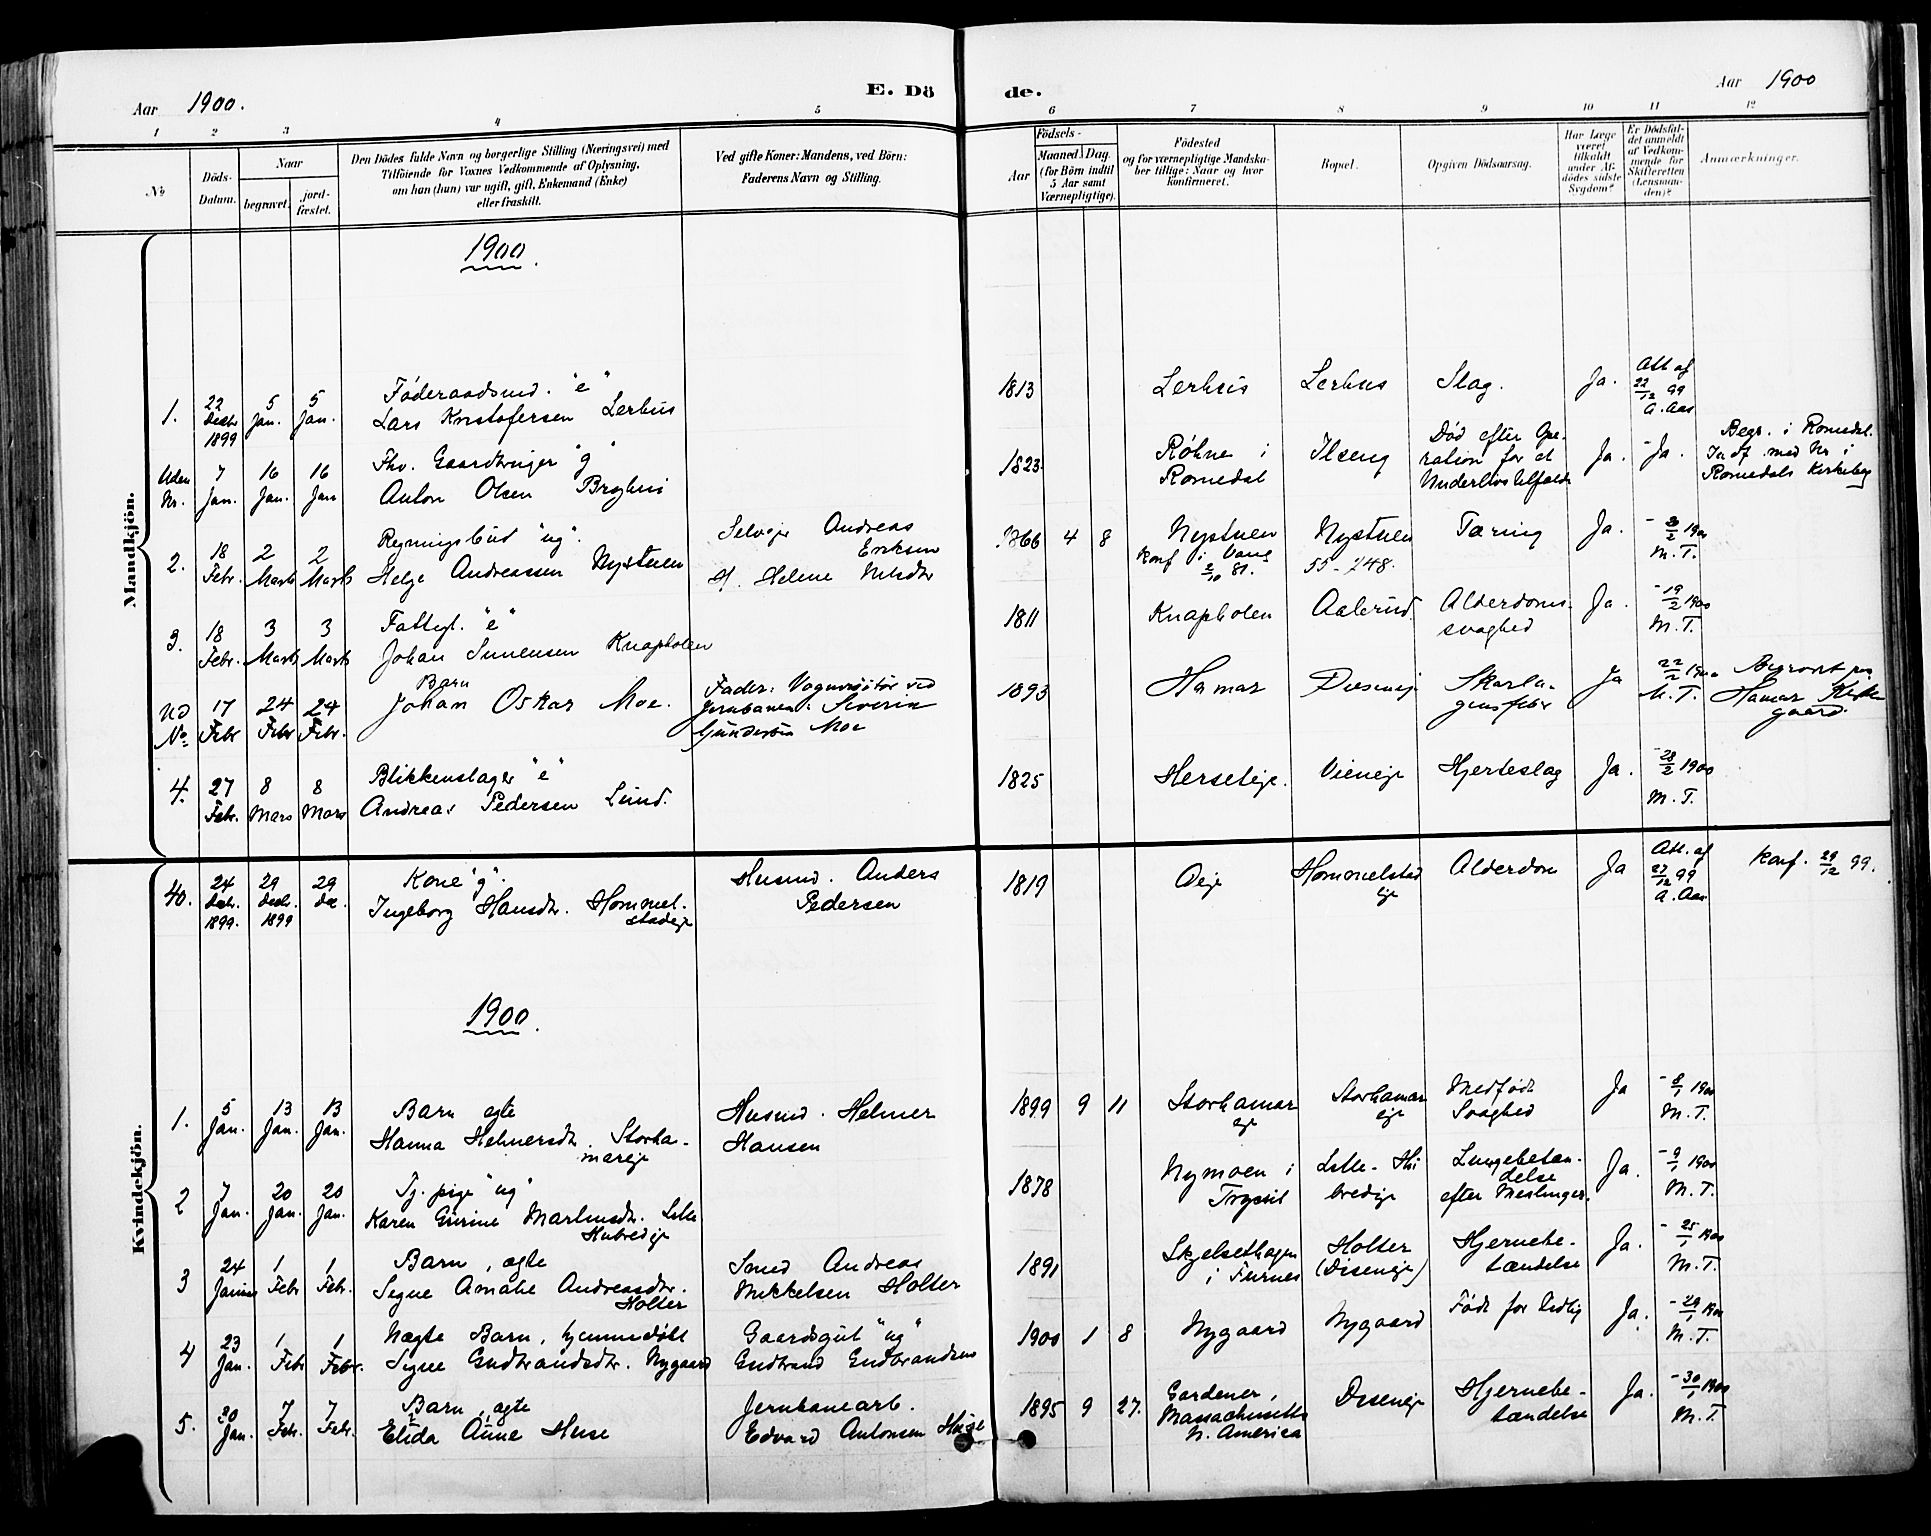 Aar 1900.
E. Dö de.
Aar 1900
1 2 3 4 5 6 7 8 9 10 11 12
No
Döds-Datum.
Naar
begravet.
jord-fæstet.
Den Dödes fulde Navn og borgerlige Stilling (Næringsvei) med
Tilföiende for Voxnes Vedkommende af Oplysning,
om han (hun) var ugift, gift, Enkemand (Enke)
eller fraskilt.
Ved gifte Koner: Mandens, ved Börn:
Faderens Navn og Stilling.
Födsels-
Aar
Maaned. Dag.
(for Börn indtil
5 Aar samt
Værnepligtige).
Födested
og for værnepligtige Mandska-
ber tillige: Naar og hvor
konfirmeret.
Bopæl.
Opgiven Dödsaarsag.
Har Læge
været
tilkaldt
under Af-
dödes sidste
Sygdom?
Er Dödsfal-
det anmeldt
af Vedkom-
mende for
Skifteretten
(Lensman-
den)?
Anmærkninger.
Mandkjön.
1900.
1. 22 Decbr 1899 5 Jan. 5 Jan.
Føderaadsmd. "e"
Lars Kristofersen Lerhus
1813 Lerhus Lerhus Slag. Ja. Att af 22/12 99 A. Aas
Uden Nr. 7 Jan. 16 Jan. 16 Jan
Fhv. Gaardbruger "g"
Anton Olsen
1823 Røhne i Romedal Ilseng
Død efter Ope-
ration for et
Underlivstilfælde
Ja. - Ja.
Begr. i Romedal.
Indf med Nr i
Romedals Kirkebog
2. 18 Febr. 2 Marts 2 Marts
Regningsbud "ug".
Helge Andreassen Nystuen
Selvejr Andreas
Eriksen
H. Helene Nilsdtr
1866 4 8
Nystuen
konf i Vang
2/10 81.
Nystuen
55-248.
Tæring Ja. - 20/2 1900 M. T.
3. 18 Febr. 3 Marts 3 Marts
Fattigl. "e"
Johan Simensen Knapholen
1811 Knapholen Aalerud. Alderdoms-
svaghed
Ja. - 19/2 1900 M. T.
Ud No. 17 Febr 24 Febr 24 Febr.
Barn
Johan Oskar Moe.
Fader: Vognvisitør ved
Jernbanen: Severin
Gundersen Moe
1893 Hamar Diseneje Skarla-
gensfeber
Ja 22/2 1900 M. T.
Begravet paa
Hamar Kirke
gaard.
4. 27 Febr. 8 Mars 8 Mars
Blikkenslager "e"
Andreas Pedersen Lund.
1825 Herseteje. Vieneje Hjerteslag Ja. - 28/2 1900 M. T.
40. 24 Decbr. 1899. 29 Decbr. 1899 29 Dec.
Kone "g".
Ingeborg Hansdtr. Hommel-
stadeje
Husmd. Anders
Pedersen
1819 Deje Hommelstad
eje
Alderdom Ja Att. af 27/12 99 A. Aas
konf. 29/12 99.
Kvindekjön.
1900.
1. 5 Jan. 13 Jan. 13 Jan.
Barn ægte
Hanna Helmersdtr. Storha-
mareje
Husmd. Helmer
Hansen
1899 9 11 Storhamar
eje
Storhamar
eje
Medfødt
Svaghed
Ja - 8/1 1900 M. T.
2 7 Jan. 20 Jan. 20 Jan.
Tj. pige "ug"
Karen Gurine Martinsdtr. Lille
Hubredeje
1878 Nymoen i
Trysil
Lille-Hu
bredeje
Lungebetæn-
delse
efter Meslinger.
Ja. - 9/1 1900 M. T.
3 24 Januar 1 Febr 1 Febr.
Barn, ægte
Signe Amalie Andreasdtr.
Holter
Smed Andreas
Mikkelsen Holter
1891 Skjelsethagen
i Furnes
Holter
(Diseneje)
Hjernebe-
tændelse
Ja. - 25/1 1900 M. T.
4 23 Jan. 1 Febr 1 Febr.
Uægte Barn, hjemmedøbt
Signe Gudbrandsdtr. Nygaard
Gaardsgut "ug"
Gudbrand Gudbrandsen
1900 1 8 Nygaard Nygaard Født for tidlig Ja. - 29/1 1900 M. T.
5. 30 Jan. 7 Febr. 7 Febr.
Barn, ægte
Elida Anne Huse
Jernbanearb.
Edvard Antonsen Huse
1895 9 27.
Gardener,
Massachusetts
N. America
Diseneje Hjernebe-
tændelse
Ja. - 30/1 1900 M. T.